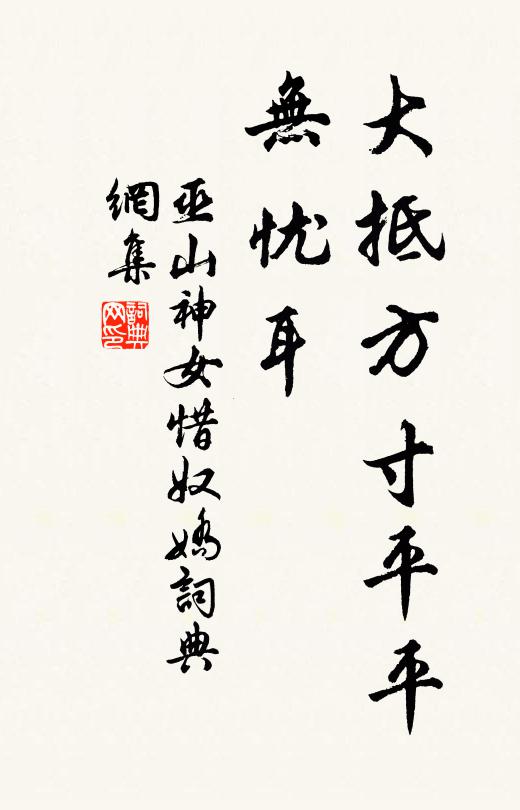 大抵方寸平平
無忧耳
巫山神女惜奴嬌詞典
網集
詞典
网印